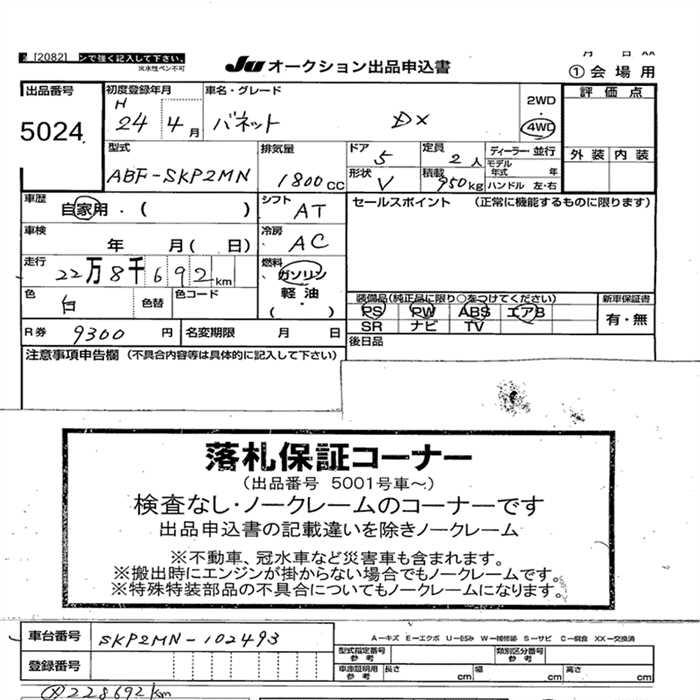 [2082] ンで強く記入して下さい。
※水性ペン不可
JU オークション出品申込書
月 日 XX
① 会場用
出品番号
5024
初度登録年月
H 24 4月
車名・グレード
バネット DX
2WD
4WD
評価点
外装 内装
型式
ABF-SKP2MN
排気量
1800CC
ドア
5
形状
V
定員
2人
積載
950kg
ディーラー・並行
モデル年式 年
ハンドル 左・右
車歴
自家用・( )
シフト
AT
セールスポイント (正常に機能するものに限ります)
車検
年 月( 日)
冷房
AC
走行
22万8千692km
燃料
ガソリン
軽油
( )
色
白
色替
色コード
装備品(純正品に限り○をつけてください)
PS PW ABS エアB
SR ナビ TV
新車保証書
有・無
R券 9300円
名変期限 月 日
後日品
注意事項申告欄 (不具合内容等は具体的に記入して下さい)
落札保証コーナー
(出品番号 5001号車～)
検査なし・ノークレームのコーナーです
出品申込書の記載違いを除きノークレーム
※不動車、冠水車など災害車も含まれます。
※搬出時にエンジンが掛からない場合でもノークレームです。
※特殊特装部品の不具合についてもノークレームになります。
車台番号 SKP2MN-102493
登録番号
A－キズ E－エクボ U－凹み W－補修跡 S－サビ C－腐食 XX－交換済
型式指定番号 参考
類別区分番号 参考
車庫証明用 参考
長さ cm
幅 cm
高さ cm
228692km